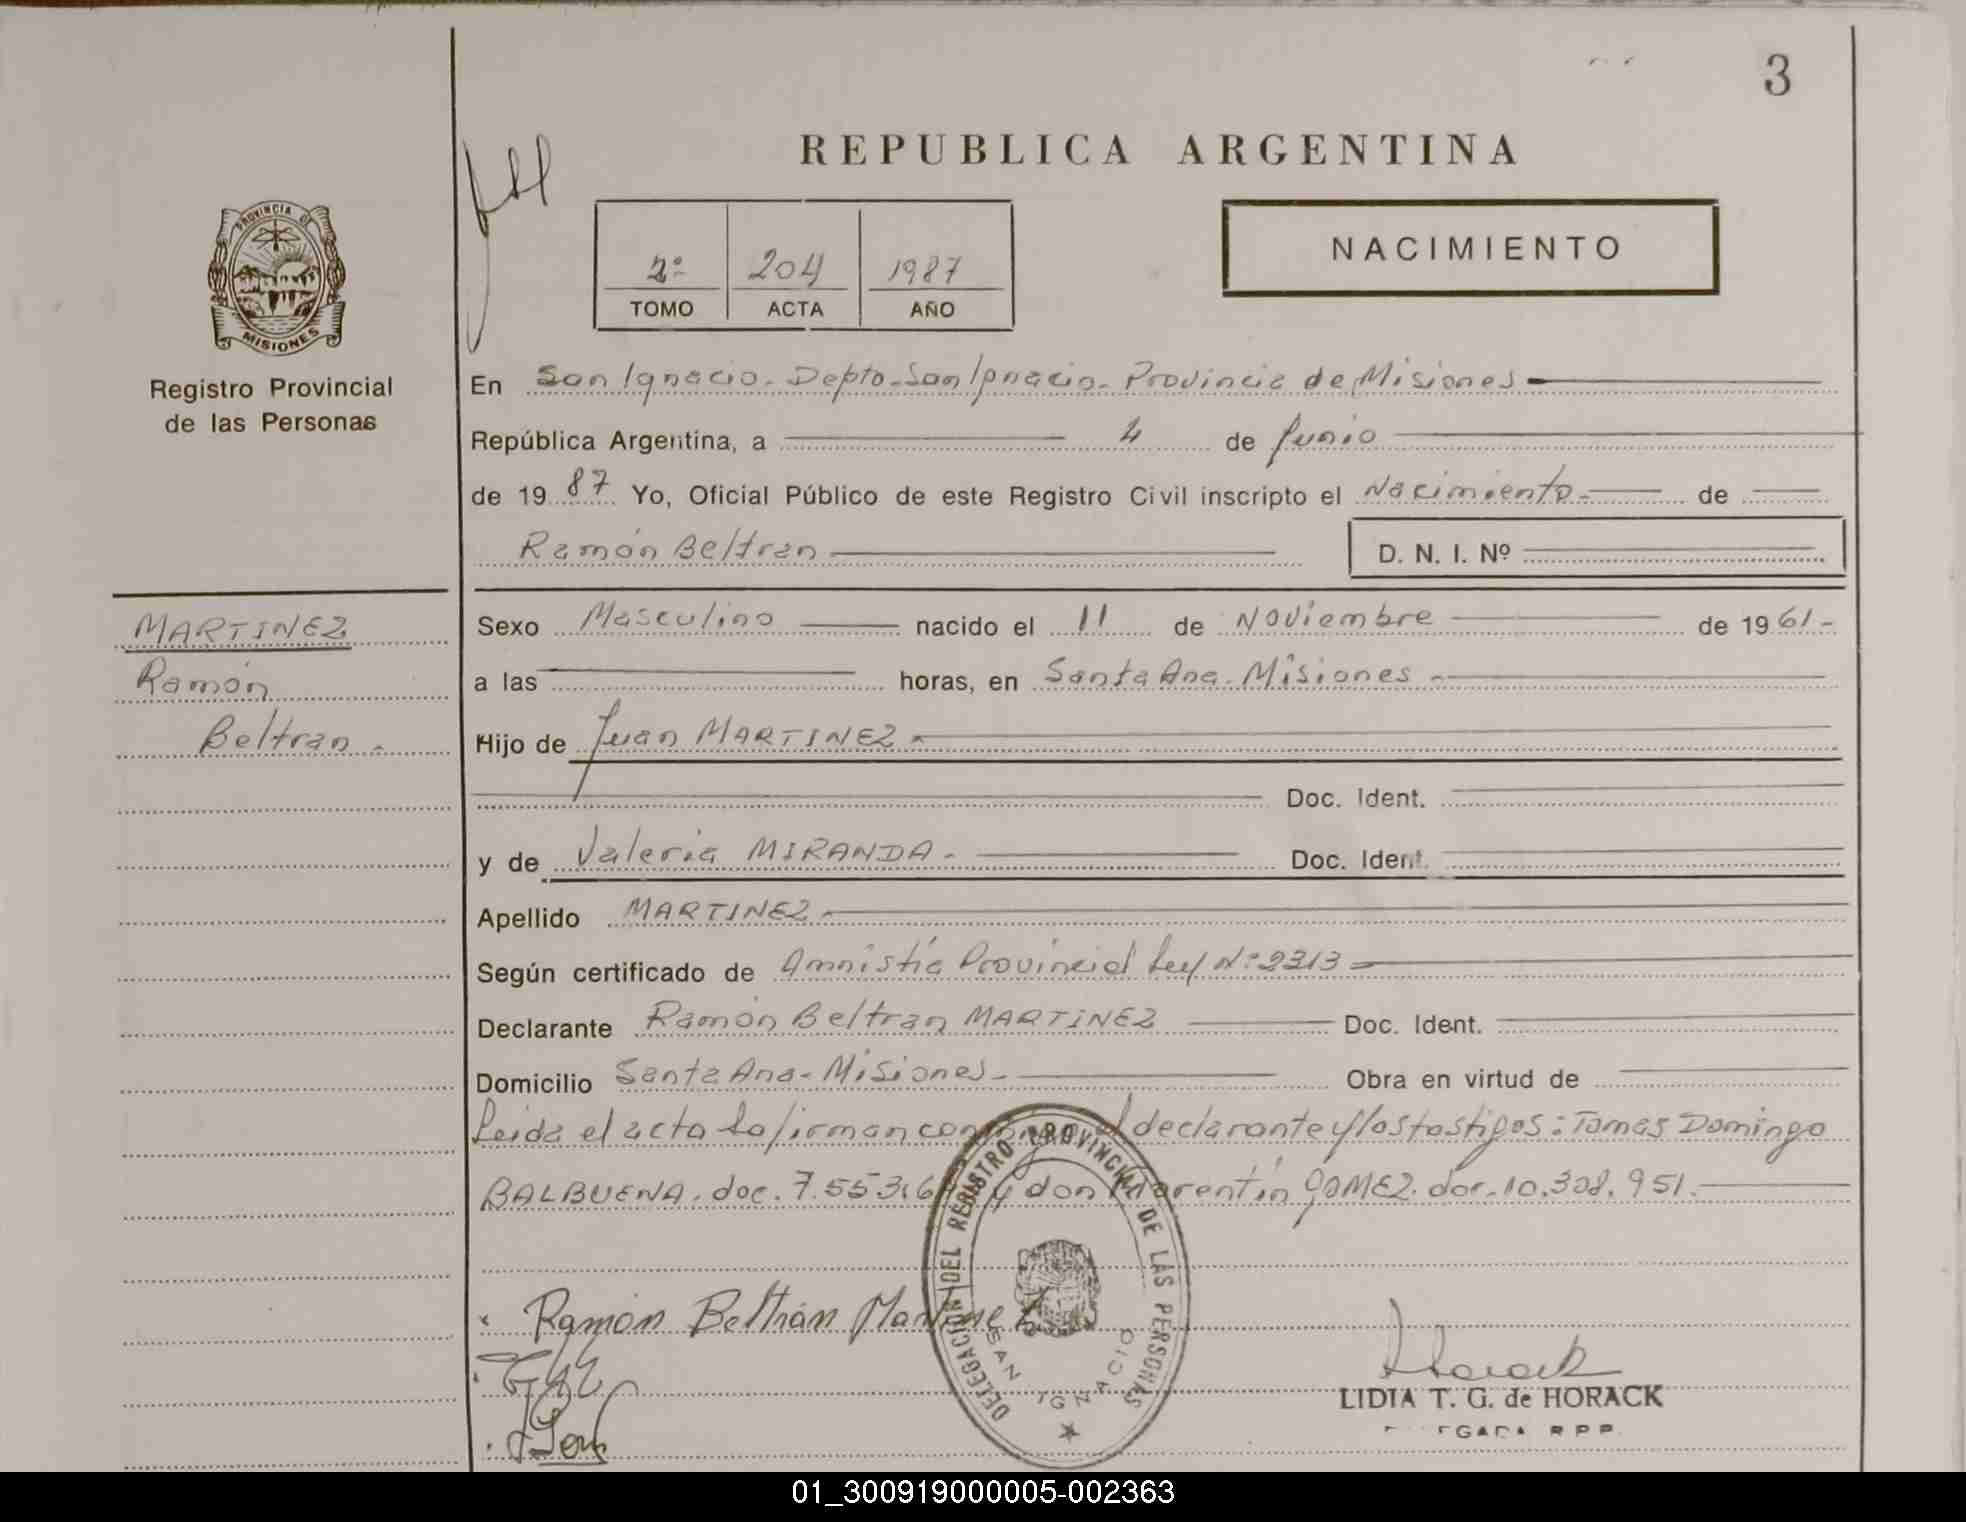 3
REPUBLICA ARGENTINA
PROVINCIA DE
MISIONES
Registro Provincial
de las Personas
2º 204 1987
TOMO ACTA AÑO
NACIMIENTO
En San Ignacio. Depto. San Ignacio. Provincia de Misiones
República Argentina, a 4 de Junio
de 19 87 Yo, Oficial Público de este Registro Civil inscripto el Nacimiento. de
Ramón Beltran D. N. I. Nº
MARTINEZ
Ramón
Beltran.
Sexo Masculino nacido el 11 de Noviembre de 19 61-
a las horas, en Santa Ana. Misiones
Hijo de Juan MARTINEZ
Doc. Ident.
y de Valeria MIRANDA. Doc. Ident.
Apellido MARTINEZ
Según certificado de Amnistía Provincial Ley Nº 2313
Declarante Ramón Beltran MARTINEZ Doc. Ident.
Domicilio Santa Ana - Misiones Obra en virtud de
Leida el acta la firman declarante y los testigos: Tomas Domingo
BALBUENA. doc. 7.553.6 y don GOMEZ. doc. 10.308.951.
DELEGACION DEL REGISTRO PROVINCIAL DE LAS PERSONAS
SAN IGNACIO
Ramón Beltrán Martinez
Horack
LIDIA T. G. de HORACK
01_300919000005-002363